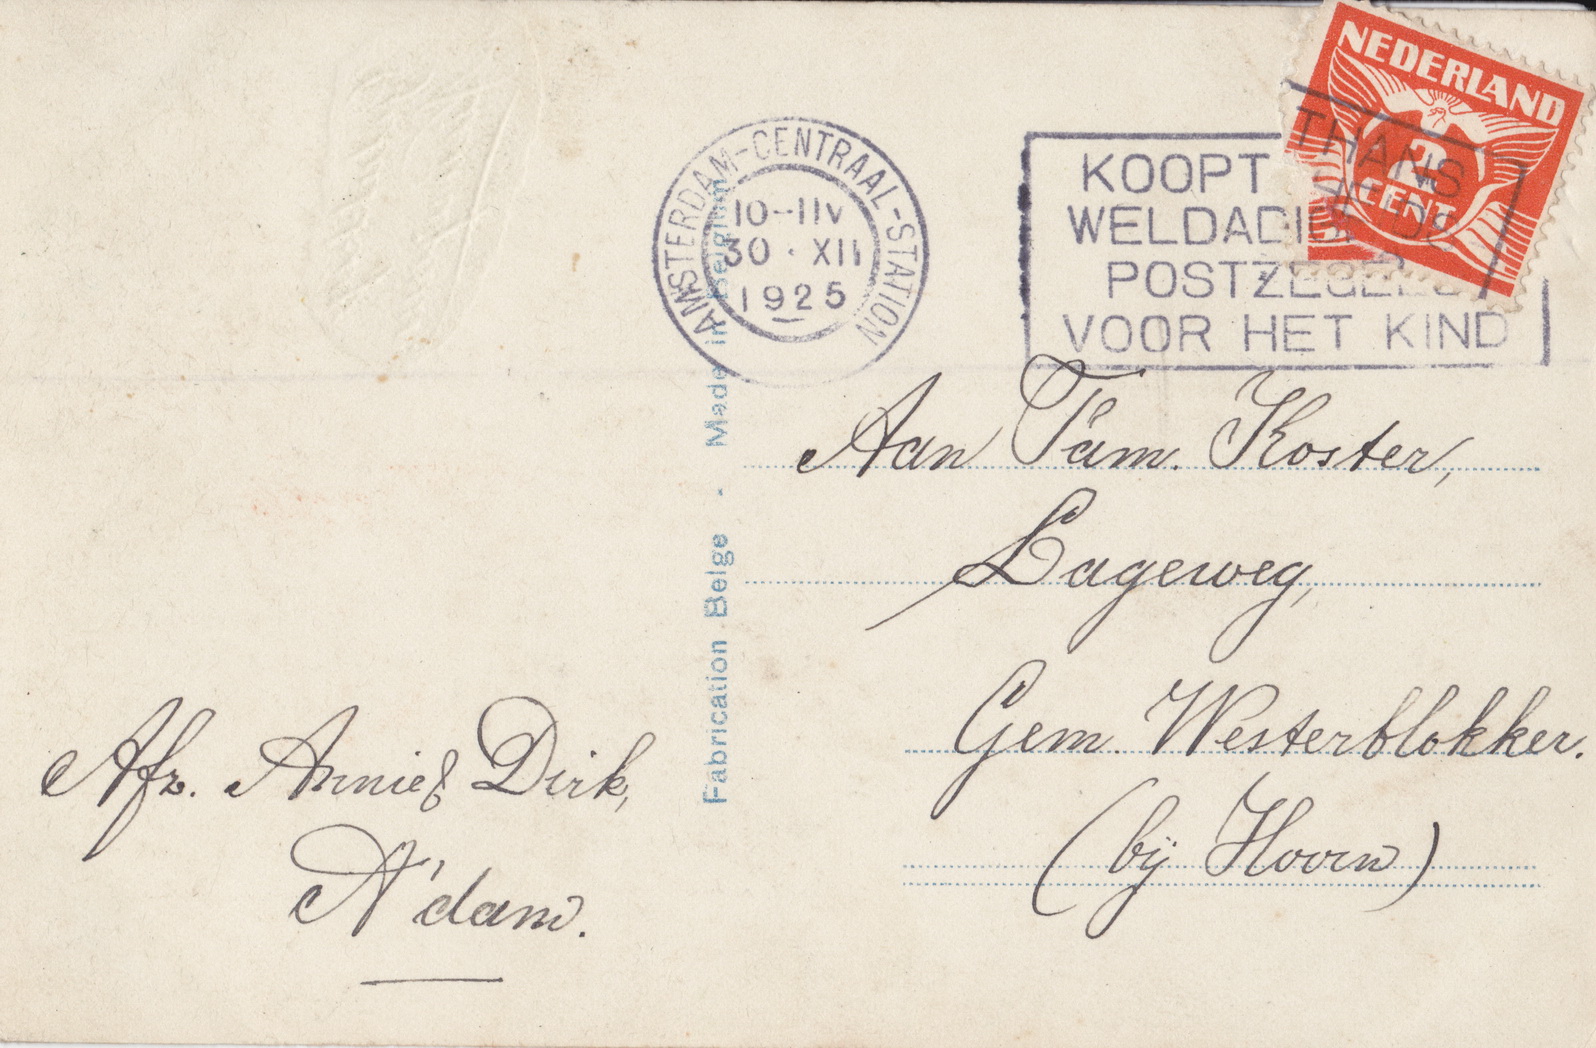 NEDERLAND
2
CENT
AMSTERDAM-CENTRAAL-STATION
10-11V
30 · XII
1925
KOOPT THANS
WELDADIGHEIDS
POSTZEGELS
VOOR HET KIND
Made in Belgium
Fabrication Belge -
Aan Fam. Koster,
Lageweg,
Gem. Westerblokker.
(bij Hoorn)
Afz. Annie & Dirk,
A'dam.